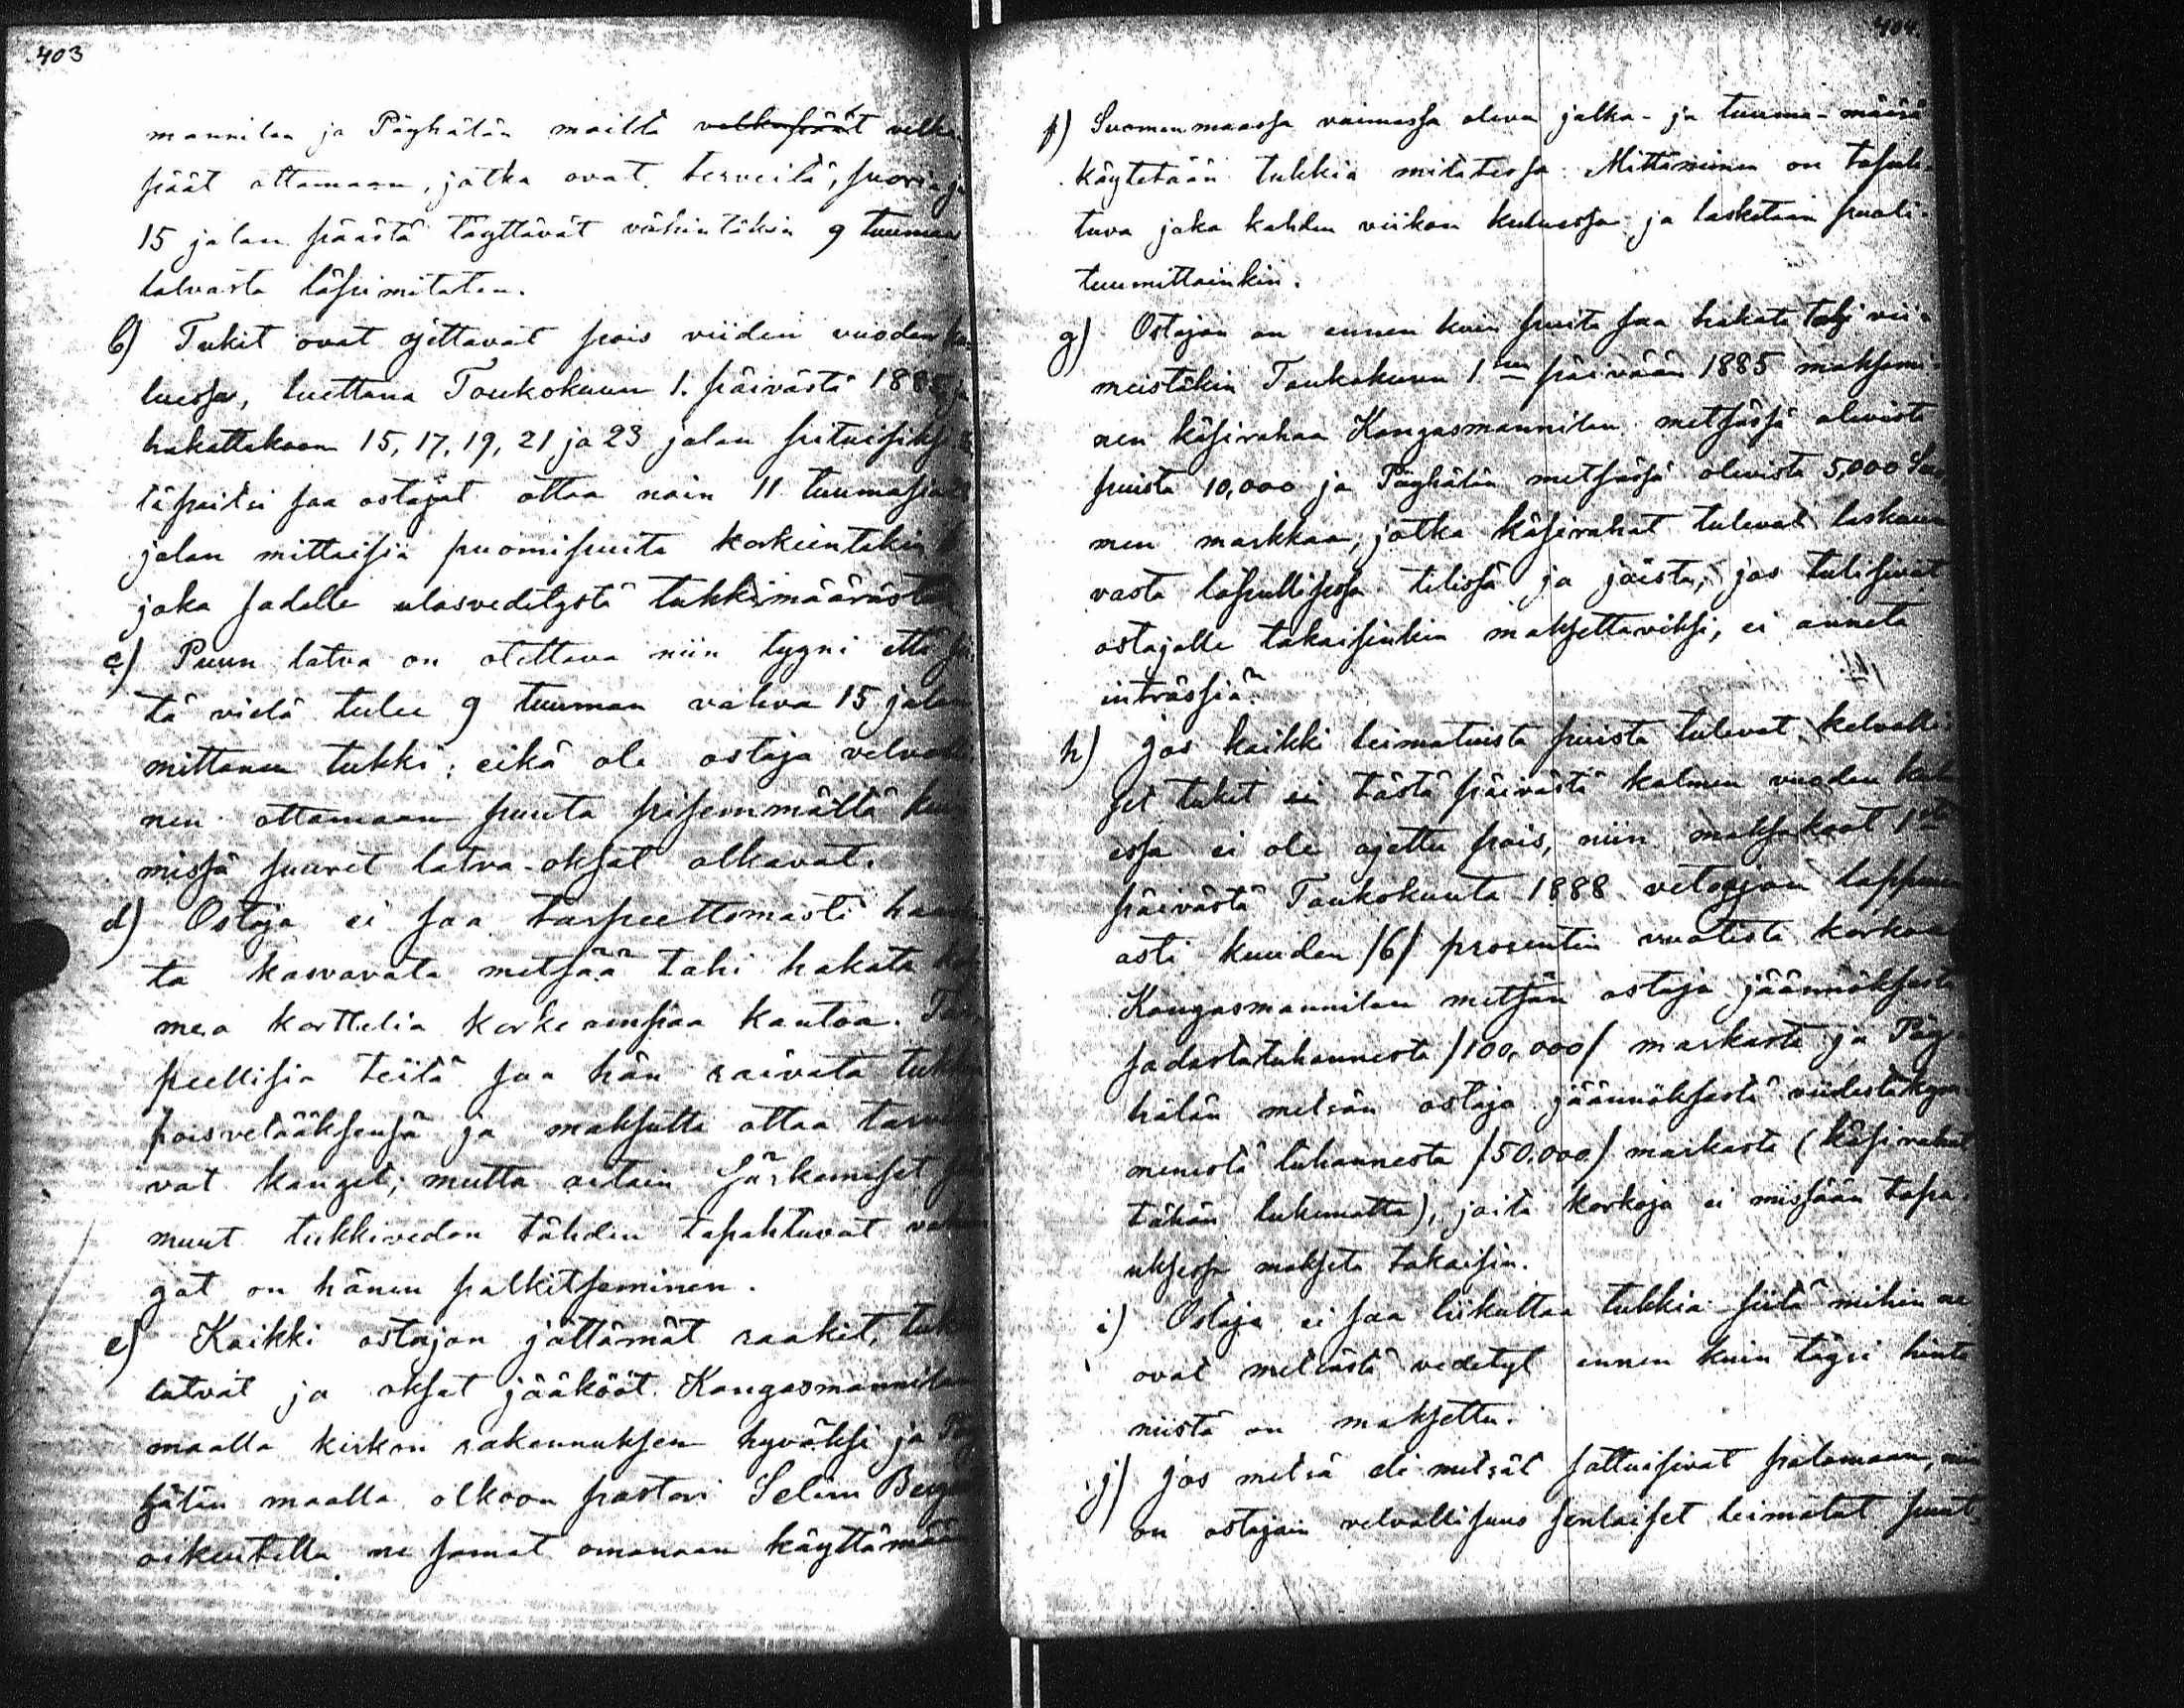 403
mannilan ja Päyhälän mailta valkopäät velka
päät ottamaan, jotka ovat terveitä, suoria ja
15 jalan päästä täyttävät vähintäkin 9 tuuman
latvasta läpimitaten.
b) Tukit ovat ajettavat pois viiden vuoden ku
luessa, luettana Toukokuun 1. päivästä 1885 ja
hakattakoon 15, 17, 19, 21 ja 23 jalan pituisiksi
täpaitsi saa ostajat ottaa noin 11 tuumasia
jalan mittaisia puomipuita korkeintakin
joka sadalle ulosvedetystä tukkimäärästä
c) Puun latva on otettava niin tyyni että sii
tä vielä tulee 9 tuuman vahva 15 jalan
mittanen tukki; eikä ole ostaja velvolli
nen ottamaan puuta pisemmältä kun
missä suuret latva-oksat alkavat.
d) Ostaja ei saa tarpeettomasti haas
ta kasvavata metsää tahi hakata kol
mea korttelia korkeampaa kantoa. Tar
peellisia teitä saa hän raivata tukki
poisvetääksensä ja maksutta ottaa tarvit
vat kanget; mutta aitain särkemiset ja
muut tukkivedon tähden tapahtuvat vahin
got on hänen palkitseminen.
e) Kaikki ostajan jättämät raakit, tukin
latvat ja oksat jääkööt Kangasmannilan
maalla kirkon rakennuksen hyväksi ja Päy
hälän maalla olkoon pastori Selim Berg
oikeutettu ne samat omanaan käyttämää
404
f) Suomenmaassa voimassa oleva jalka- ja tuuma-määrä
käytetään tukkia mitatessa. Mittäminen on tapah-
tuva joka kahden viikon kuluessa ja lasketaan puoli-
tuumittainkin.
g) Ostajan on ennen kuin puita saa hakata tahi vii-
meistäkin Toukokuun 1sen päivään 1885 maksami-
nen käsirahaa Kangasmannilan metsässä olevista
puista 10,000 ja Päyhälän metsässä olevista 5,000 Suo
men markkaa, jotka käsirahat tulevat laskuun
vasta lopullisessa tilissä ja joista, jos tulisivat
ostajalle takaisinkin maksettaviksi, ei anneta
inträssiä.
h) Jos kaikki leimatuista puista tulevat kelvolli-
set tukit ei tästä päivästä kolmen vuoden kulu
essa ei ole ajettu pois, niin maksakoot 1stä
päivästä Toukokuuta 1888 vetoajan loppuun
asti kuuden /6/ prosentin vuotista korkoa
Kangasmannilan metsän ostaja jäännöksestä
sadastatuhannesta /100,000/ markasta ja Päy-
hälän metsän ostaja jäännöksestä viidestäkym-
menestä tuhannesta /50.000/ markasta (käsirahat
tähän lukematta), joita korkoja ei missään tapa-
uksessa makseta takaisin.
i) Ostaja ei saa liikuttaa tukkia siitä mihin ne
ovat metsästä vedetyt ennen kuin täysi hinta
niistä on maksettu.
j) Jos metsä eli metsät sattuisivat palamaan, niin
on ostajain velvollisuus senlaiset leimatut puut